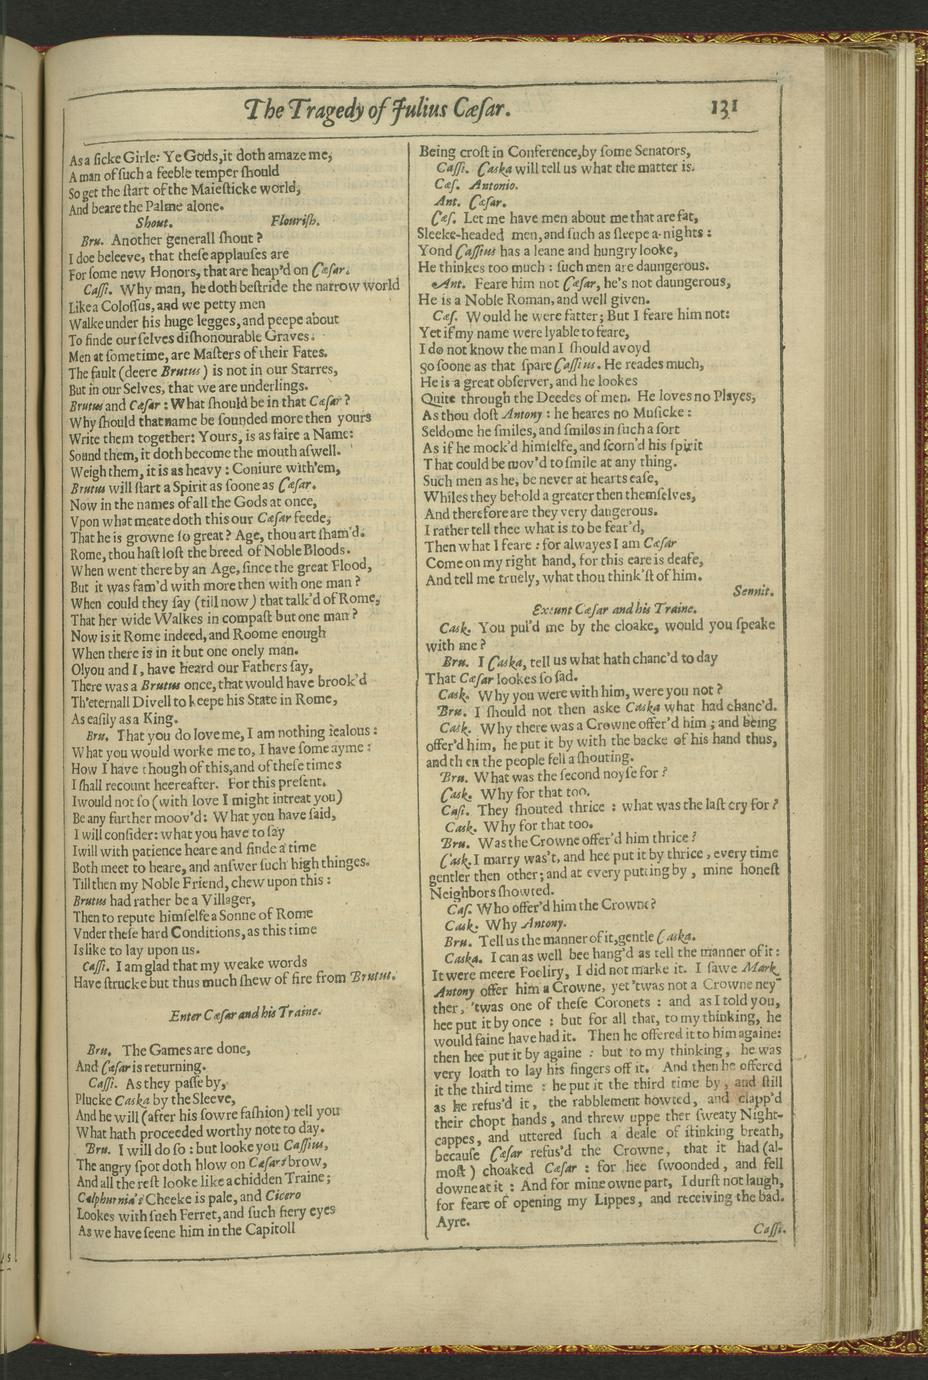 The Tragedy of Julius Cæſar.
131
As a ſicke Girle: Ye Gods, it doth amaze me,
A man of ſuch a feeble temper ſhould
So get the ſtart of the Maieſticke world,
And beare the Palme alone.
Shout. Flouriſh.
Bru. Another generall ſhout?
I doe beleeve, that theſe applauſes are
For ſome new Honors, that are heap'd on Cæſar.
Caſſi. Why man, he doth beſtride the narrow world
Like a Coloſſus, and we petty men
Walke under his huge legges, and peepe about
To finde our ſelves diſhonourable Graves.
Men at ſometime, are Maſters of their Fates.
The fault (deere Brutus) is not in our Starres,
But in our Selves, that we are underlings.
Brutus and Cæſar: What ſhould be in that Cæſar?
Why ſhould that name be ſounded more then yours
Write them together: Yours, is as faire a Name:
Sound them, it doth become the mouth aſwell.
Weigh them, it is as heavy: Coniure with'em,
Brutus will ſtart a Spirit as ſoone as Cæſar.
Now in the names of all the Gods at once,
Vpon what meate doth this our Cæſar feede,
That he is growne ſo great? Age, thou art ſham'd.
Rome, thou haſt loſt the breed of Noble Bloods.
When went there by an Age, ſince the great Flood,
But it was fam'd with more then with one man?
When could they ſay (till now) that talk'd of Rome,
That her wide Walkes in compaſt but one man?
Now is it Rome indeed, and Roome enough
When there is in it but one onely man.
O! you and I, have heard our Fathers ſay,
There was a Brutus once, that would have brook'd
Th'eternall Divell to keepe his State in Rome,
As eaſily as a King.
Bru. That you do love me, I am nothing iealous:
What you would worke me to, I have ſome ayme:
How I have though of this, and of theſe times
I ſhall recount heereafter. For this preſent,
I would not ſo (with love I might intreat you)
Be any further moov'd: What you have ſaid,
I will conſider: what you have to ſay
I will with patience heare and finde a time
Both meet to heare, and anſwer ſuch high thinges.
Till then my Noble Friend, chew upon this:
Brutus had rather be a Villager,
Then to repute himſelfe a Sonne of Rome
Vnder theſe hard Conditions, as this time
Is like to lay upon us.
Caſſi. I am glad that my weake words
Have ſtrucke but thus much ſhew of fire from Brutus.
Enter Cæſar and his Traine.
Bru. The Games are done,
And Cæſar is returning.
Caſſi. As they paſſe by,
Plucke Caska by the Sleeve,
And he will (after his ſowre faſhion) tell you
What hath proceeded worthy note to day.
Bru. I will do ſo: but looke you Caſſius,
The angry ſpot doth blow on Cæſars brow,
And all the reſt looke like a chidden Traine;
Calphurnia's Cheeke is pale, and Cicero
Lookes with ſuch Ferret, and ſuch fiery eyes
As we have ſeene him in the Capitoll
Being croſt in Conference, by ſome Senators,
Caſſi. Caska will tell us what the matter is.
Cæſ. Antonio.
Ant. Cæſar.
Cæſ. Let me have men about me that are fat,
Sleeke-headed men, and ſuch as ſleepe a-nights:
Yond Caſſius has a leane and hungry looke,
He thinkes too much: ſuch men are daungerous.
Ant. Feare him not Cæſar, he's not daungerous,
He is a Noble Roman, and well given.
Cæſ. Would he were fatter; But I feare him not:
Yet if my name were lyable to feare,
I do not know the man I ſhould avoyd
So ſoone as that ſpare Caſſius. He reades much,
He is a great obſerver, and he lookes
Quite through the Deedes of men. He loves no Playes,
As thou doſt Antony: he heares no Muſicke:
Seldome he ſmiles, and ſmiles in ſuch a ſort
As if he mock'd himſelfe, and ſcorn'd his ſpirit
That could be mov'd to ſmile at any thing.
Such men as he, be never at hearts eaſe,
Whiles they behold a greater then themſelves,
And therefore are they very dangerous.
I rather tell thee what is to be fear'd,
Then what I feare: for alwayes I am Cæſar
Come on my right hand, for this eare is deafe,
And tell me truely, what thou think'ſt of him.
Sennit.
Exeunt Cæſar and his Traine.
Cask. You pul'd me by the cloake, would you ſpeake
with me?
Bru. I Caska, tell us what hath chanc'd to day
That Cæſar lookes ſo ſad.
Cask. Why you were with him, were you not?
Bru. I ſhould not then aske Caska what had chanc'd.
Cask. Why there was a Crowne offer'd him; and being
offer'd him, he put it by with the backe of his hand thus,
and then the people fell a ſhouting.
Bru. What was the ſecond noyſe for?
Cask. Why for that too.
Caſſ. They ſhouted thrice: what was the laſt cry for?
Cask. Why for that too.
Bru. Was the Crowne offer'd him thrice?
Cask. I marry was't, and hee put it by thrice, every time
gentler then other; and at every putting by, mine honeſt
Neighbors ſhowted.
Caſ. Who offer'd him the Crowne?
Cask. Why Antony.
Bru. Tell us the manner of it, gentle Caska.
Caska. I can as well bee hang'd as tell the manner of it:
It were meere Fooliry, I did not marke it. I ſawe Mark
Antony offer him a Crowne, yet 'twas not a Crowne ney-
ther, 'twas one of theſe Coronets: and as I told you,
hee put it by once: but for all that, to my thinking, he
would faine have had it. Then he offered it to him againe:
then hee put it by againe: but to my thinking, he was
very loath to lay his fingers off it. And then he offered
it the third time: he put it the third time by, and ſtill
as he refus'd it, the rabblement howted, and clapp'd
their chopt hands, and threw uppe ther ſweaty Night-
cappes, and uttered ſuch a deale of ſtinking breath,
becauſe Cæſar refus'd the Crowne, that it had (al-
moſt) choaked Cæſar: for hee ſwoonded, and fell
downe at it: And for mine owne part, I durſt not laugh,
for feare of opening my Lippes, and receiving the bad.
Ayre.
Caſſi.